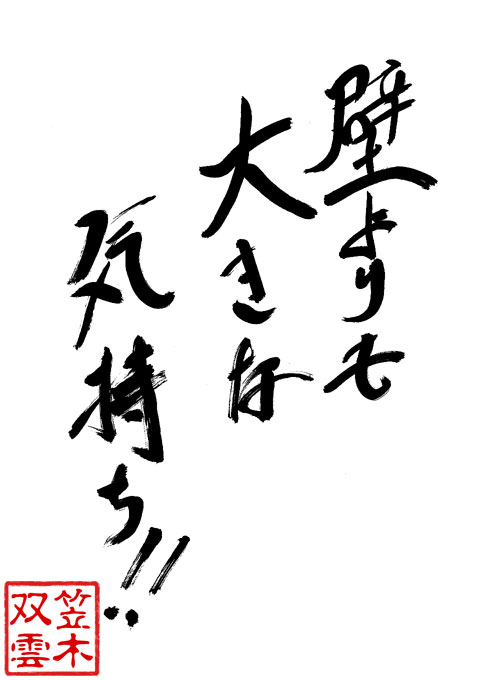 壁よりも
大きな
気持ち!!
笠木
双雲